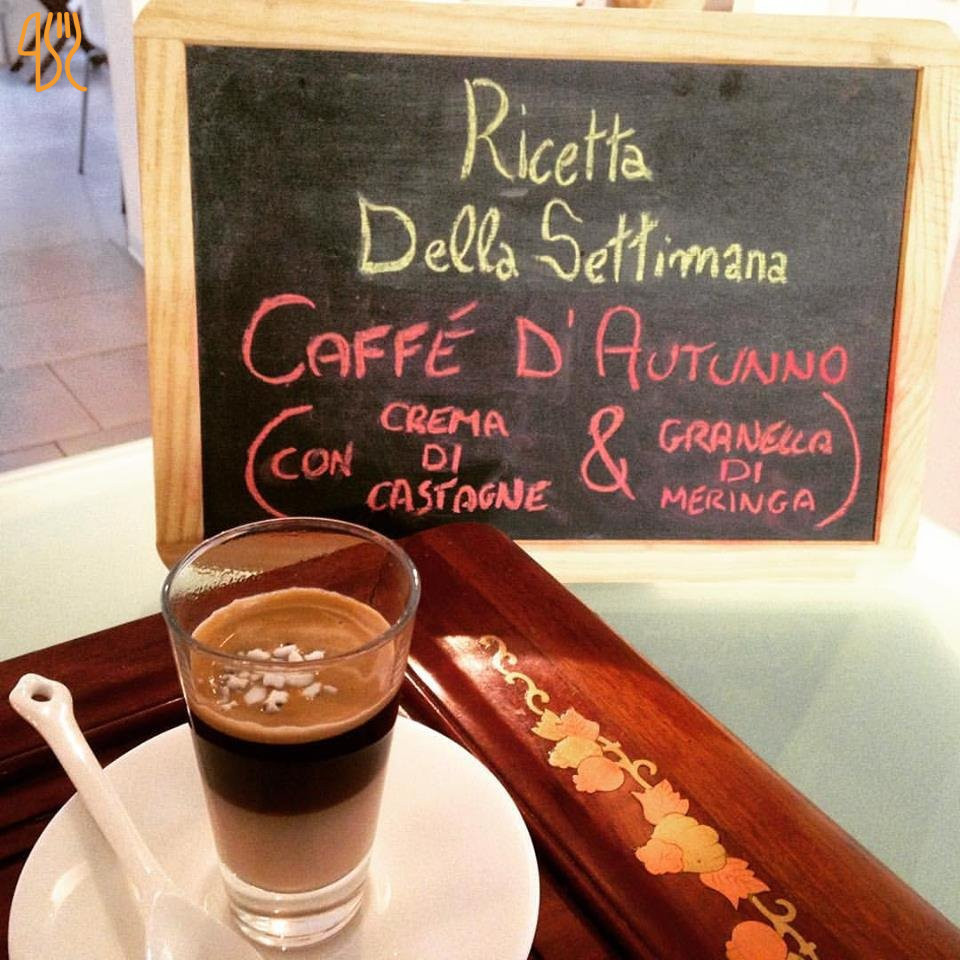 Ricetta
Della Settimana
CAFFÉ D'AUTUNNO
(CON CREMA DI CASTAGNE & GRANELLA DI MERINGA)